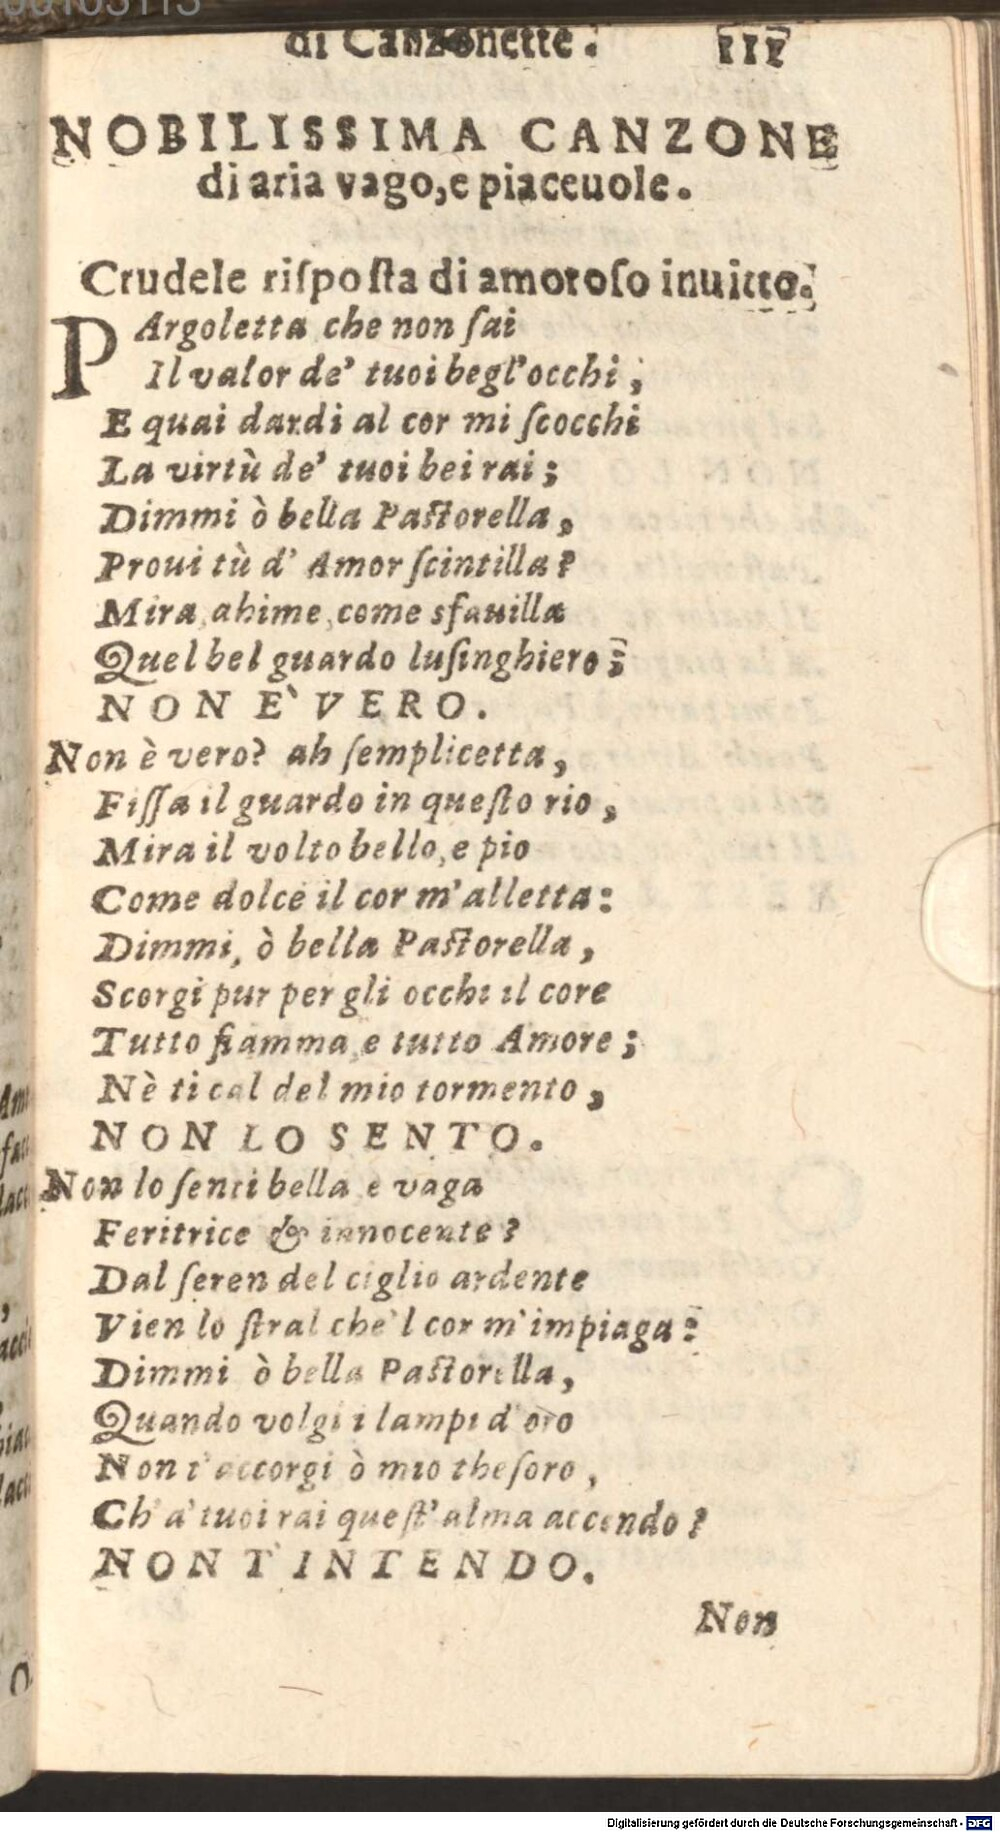 00103113
di Canzonette. 111
NOBILISSIMA CANZONE
di aria vago, e piaceuole.
Crudele riſpoſta di amoroſo inuitto.
PArgoletta che non ſai
Il valor de' tuoi begl'occhi,
E quai dardi al cor mi ſcocchi
La virtù de' tuoi bei rai;
Dimmi ò bella Paſtorella,
Proui tù d' Amor ſcintilla?
Mira, ahime, come sfauilla
Quel bel guardo luſinghiero;
NON E' VERO.
Non è vero? ah ſemplicetta,
Fiſſa il guardo in queſto rio,
Mira il volto bello, e pio
Come dolce il cor m'alletta:
Dimmi, ò bella Paſtorella,
Scorgi pur per gli occhi il core
Tutto fiamma, e tutto Amore;
Nè ti cal del mio tormento,
NON LO SENTO.
Non lo ſenti bella e vaga
Feritrice & innocente?
Dal ſeren del ciglio ardente
Vien lo ſtral che'l cor m'impiaga:
Dimmi ò bella Paſtorella,
Quando volgi i lampi d'oro
Non t'accorgi ò mio theſoro,
Ch'a' tuoi rai queſt'alma accendo?
NON T'INTENDO.
Non
Digitalisierung gefördert durch die Deutsche Forschungsgemeinschaft - DFG